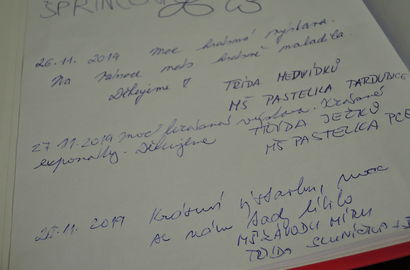 ŠPRINCLO
26.11.2019 Moc krásná výstava.
Na Vánoce nás krásně naladila.
Děkujeme
TŘÍDA MEDVÍDKŮ
MŠ PASTELKA PARDUBICE
27.11.2019 moc krásná výstava. Krásné
exponáty. Děkujeme TŘÍDA JEŽKŮ
MŠ PASTELKA PCE
25.11.2019 Krásné výstavy, moc
se nám tady líbilo
MŠ ZÁVODU MÍRU
TŘÍDA SLUNÍČKA